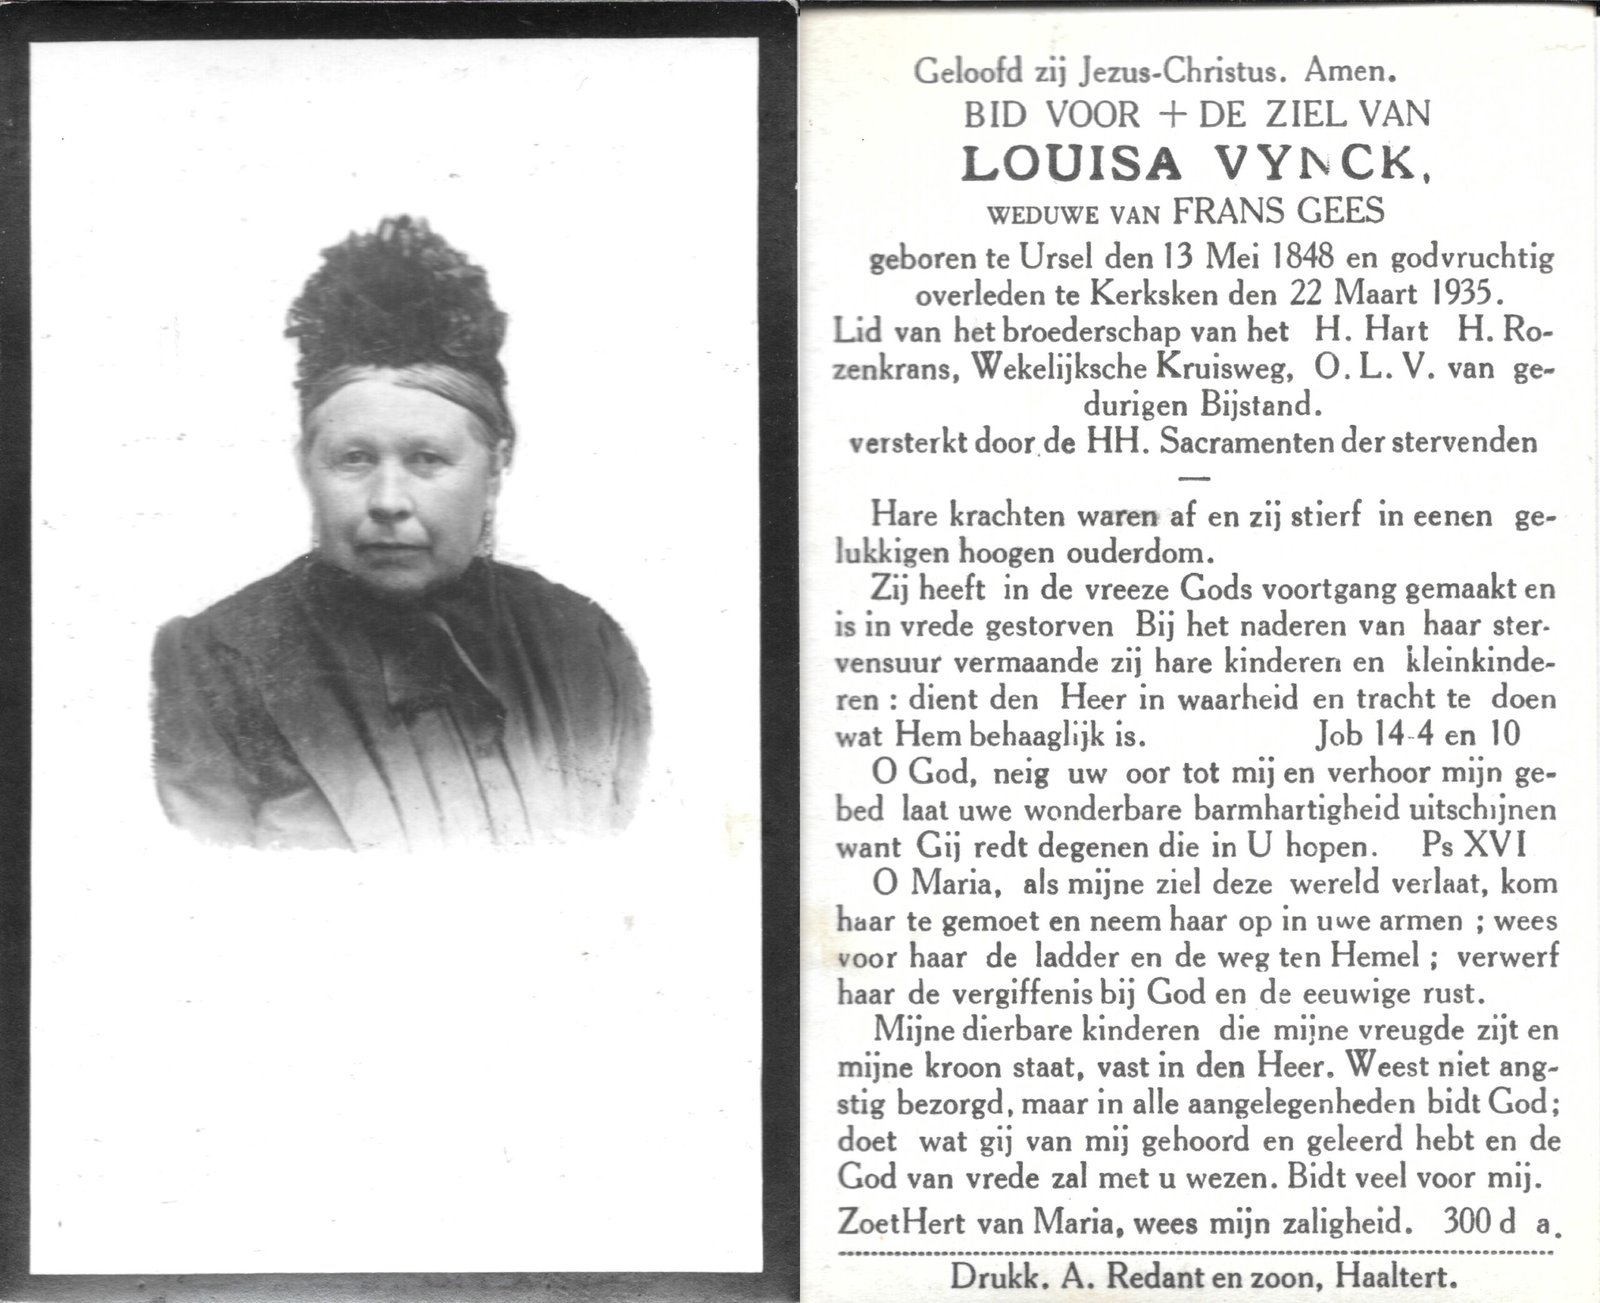 Geloofd zij Jezus-Christus. Amen.
BID VOOR + DE ZIEL VAN
LOUISA VYNCK,
WEDUWE VAN FRANS GEES
geboren te Ursel den 13 Mei 1848 en godvruchtig
overleden te Kerksken den 22 Maart 1935.
Lid van het broederschap van het H. Hart H. Ro-
zenkrans, Wekelijksche Kruisweg, O. L. V. van ge-
durigen Bijstand.
versterkt door de HH. Sacramenten der stervenden
—
Hare krachten waren af en zij stierf in eenen ge-
lukkigen hoogen ouderdom.
Zij heeft in de vreeze Gods voortgang gemaakt en
is in vrede gestorven Bij het naderen van haar ster-
vensuur vermaande zij hare kinderen en kleinkinde-
ren : dient den Heer in waarheid en tracht te doen
wat Hem behaaglijk is. Job 14-4 en 10
O God, neig uw oor tot mij en verhoor mijn ge-
bed laat uwe wonderbare barmhartigheid uitschijnen
want Gij redt degenen die in U hopen. Ps XVI
O Maria, als mijne ziel deze wereld verlaat, kom
haar te gemoet en neem haar op in uwe armen ; wees
voor haar de ladder en de weg ten Hemel ; verwerf
haar de vergiffenis bij God en de eeuwige rust.
Mijne dierbare kinderen die mijne vreugde zijt en
mijne kroon staat, vast in den Heer. Weest niet ang-
stig bezorgd, maar in alle aangelegenheden bidt God;
doet wat gij van mij gehoord en geleerd hebt en de
God van vrede zal met u wezen. Bidt veel voor mij.
Zoet Hert van Maria, wees mijn zaligheid. 300 d a.
Drukk. A. Redant en zoon, Haaltert.